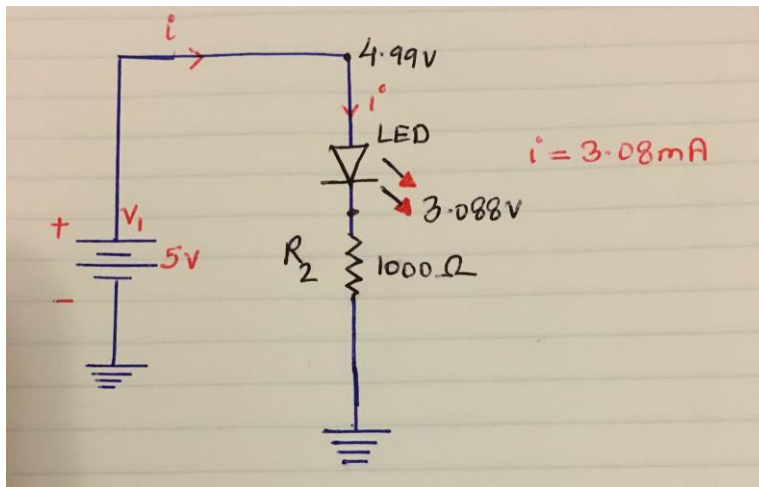 i
4.99V
i
LED
i = 3.08mA
3.088V
+
V1
5V
−
R2
1000Ω